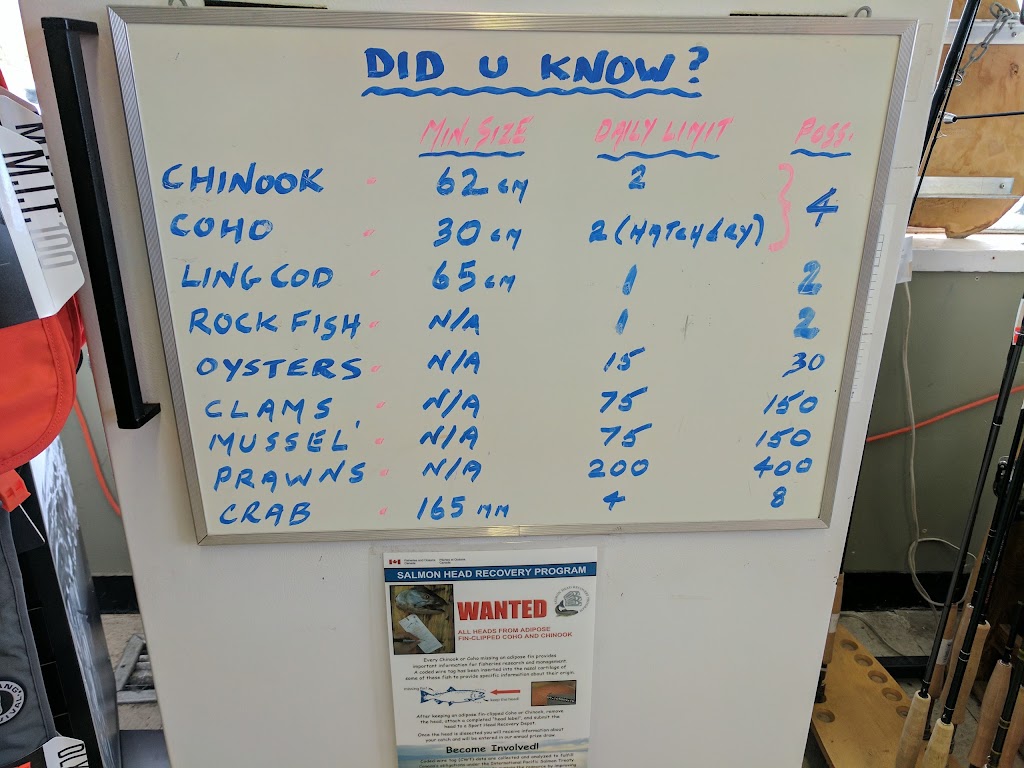 DID U KNOW?
MIN. SIZE DAILY LIMIT POSS.
CHINOOK " 62 CM 2
COHO " 30 CM 2 (HATCHERY) } 4
LING COD " 65 CM 1 2
ROCK FISH " N/A 1 2
OYSTERS " N/A 15 30
CLAMS " N/A 75 150
MUSSEL' " N/A 75 150
PRAWNS " N/A 200 400
CRAB " 165 MM 4 8
M.I.T. 100
SALMON HEAD RECOVERY PROGRAM
WANTED
ALL HEADS FROM ADIPOSE
FIN-CLIPPED COHO AND CHINOOK
Every Chinook or Coho missing an adipose fin provides
important information for fisheries research and management.
A coded wire tag has been inserted into the nasal cartilage of
some of these fish to provide specific information about their origin.
After keeping an adipose fin-clipped Coho or Chinook, remove
the head, attach a completed "head label", and submit the
head to a Sport Head Recovery Depot.
Once the head is dissected you will receive information about
your catch and will be entered in our annual prize draw.
Become Involved!
Coded wire tag (CWT) data are collected and analyzed to fulfill
Canada's obligations under the International Pacific Salmon Treaty